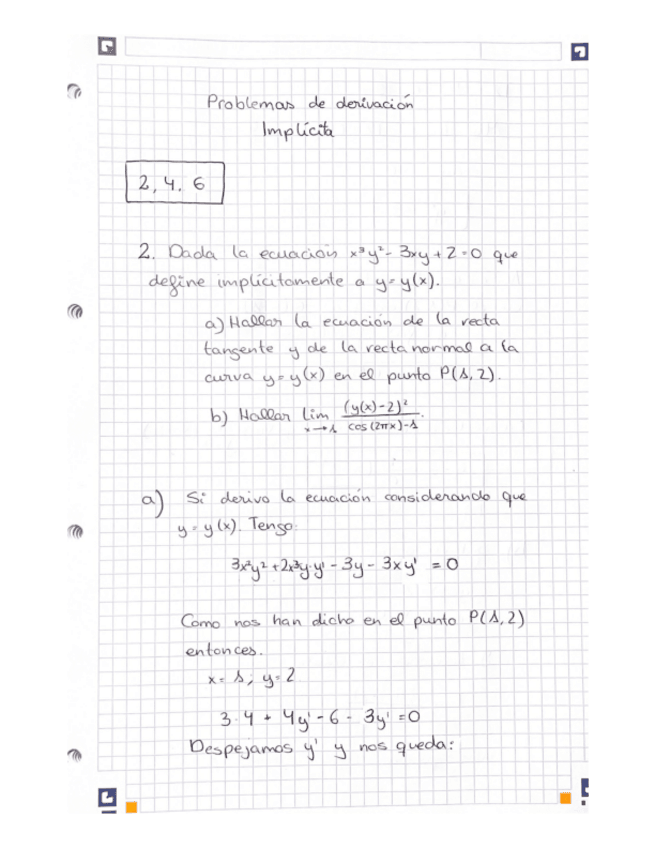 Problemas de derivación
Implícita
2, 4. 6
2. Dada la ecuación x³y²- 3xy + 2 = 0 que
define implícitamente a y = y(x).
a) Hallar la ecuación de la recta
tangente y de la recta normal a la
curva y = y(x) en el punto P(1, 2).
b) Hallar lim x→1 (y(x)-2)² / cos(2πx)-1.
a) Si derivo la ecuación considerando que
y = y(x). Tengo:
3x²y² + 2x³y·y' - 3y - 3xy' = 0
Como nos han dicho en el punto P(1, 2)
entonces.
x = 1; y = 2
3·4 + 4y' - 6 - 3y' = 0
Despejamos y' y nos queda: